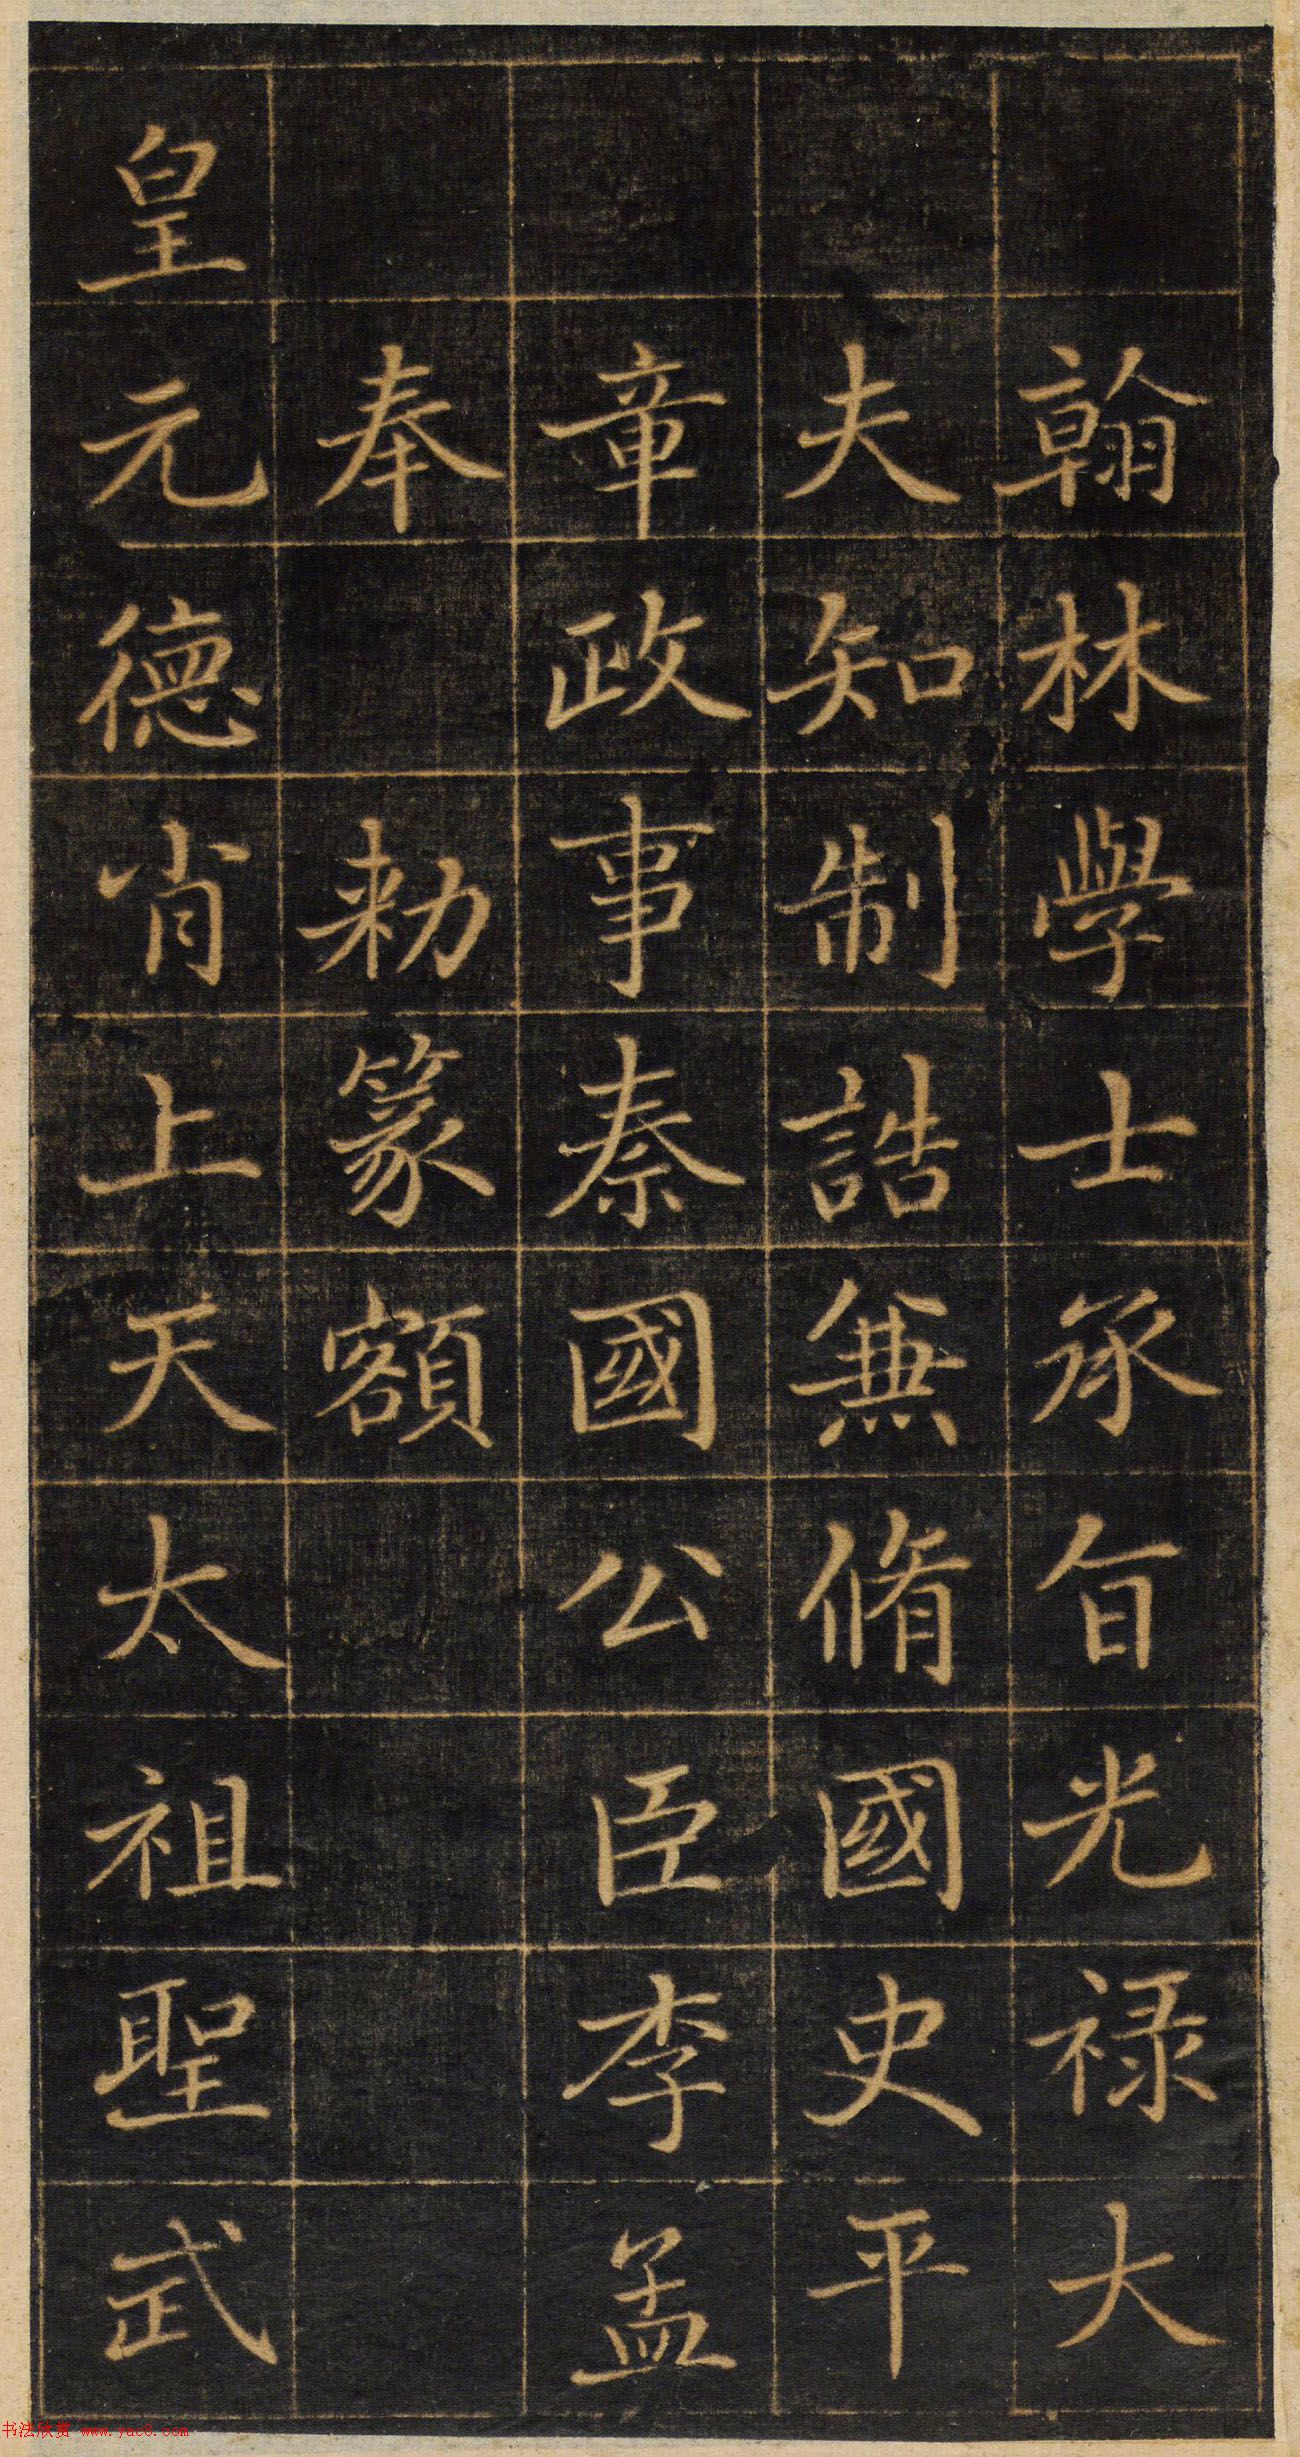 翰林學士承旨光禄大
夫知制誥兼脩國史平
章政事秦國公臣李孟
奉 勅篆額
皇元德肖上天太祖聖武
书法欣赏 www.yac8.com